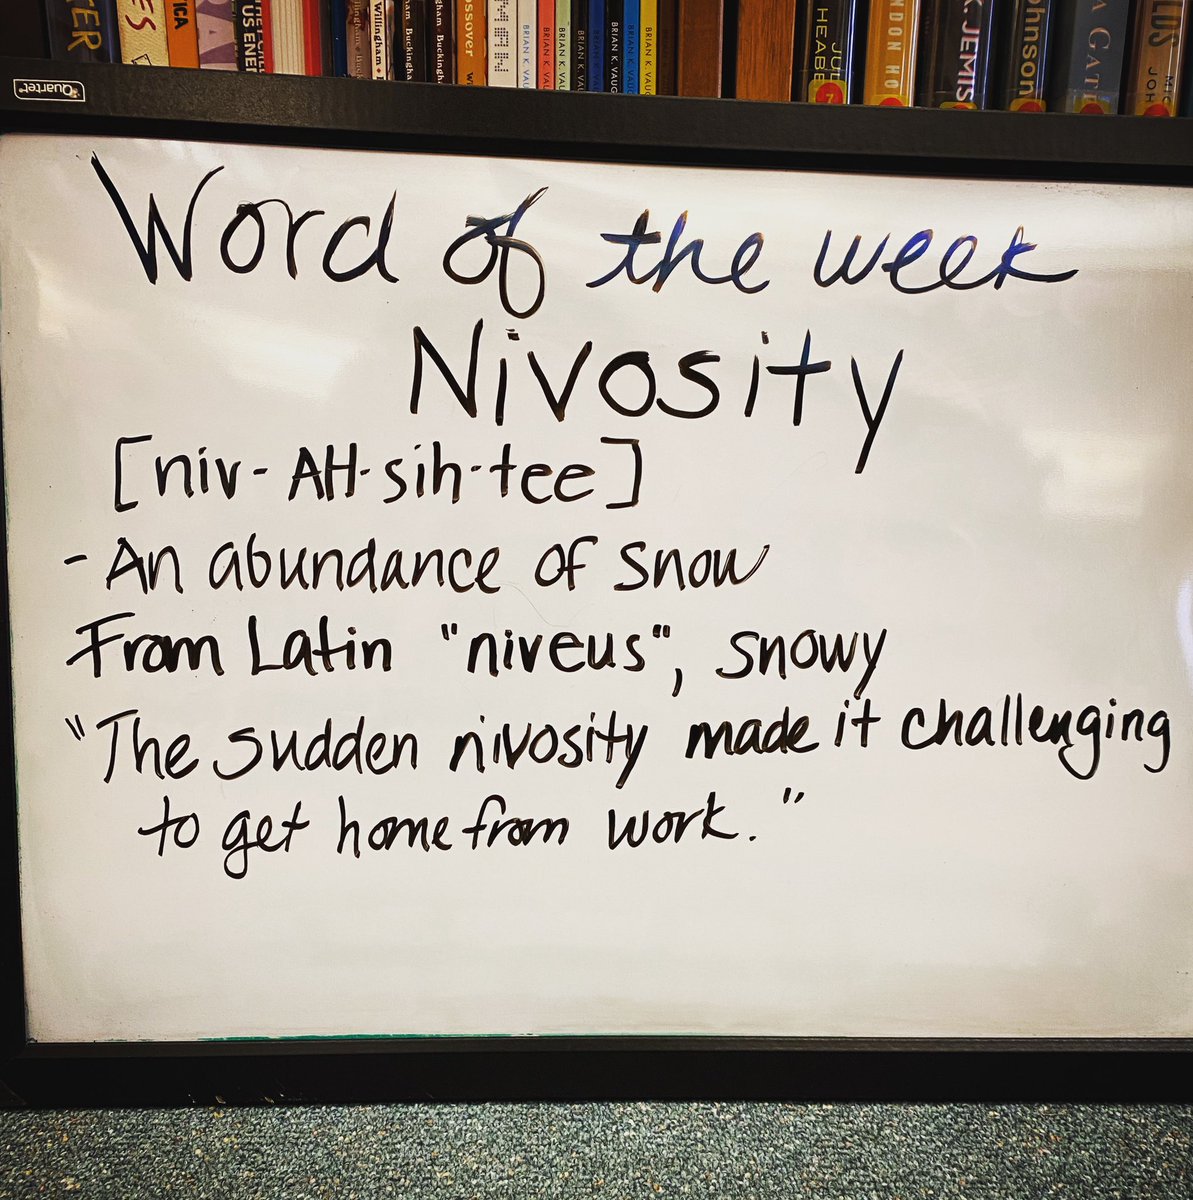 TER
ES
TICA
US
Willingham
Buckingham
Buckingham
ossover
MAN
BRIAN K. VAUG
BRIAN K. VAUG
BRIAN K. VAUG
BRIAN K. VAUG
BRIAN K. VAUG
BRIAN K. VAUG
BRIAN K. VAUG
HEABE
NDON HO
K. JEMIS
ohnson
A GATE
LDS
JOH
Quartet
Word of the week
Nivosity
[niv-AH-sih-tee]
- An abundance of snow
From Latin "niveus", snowy
"The sudden nivosity made it challenging
to get home from work."